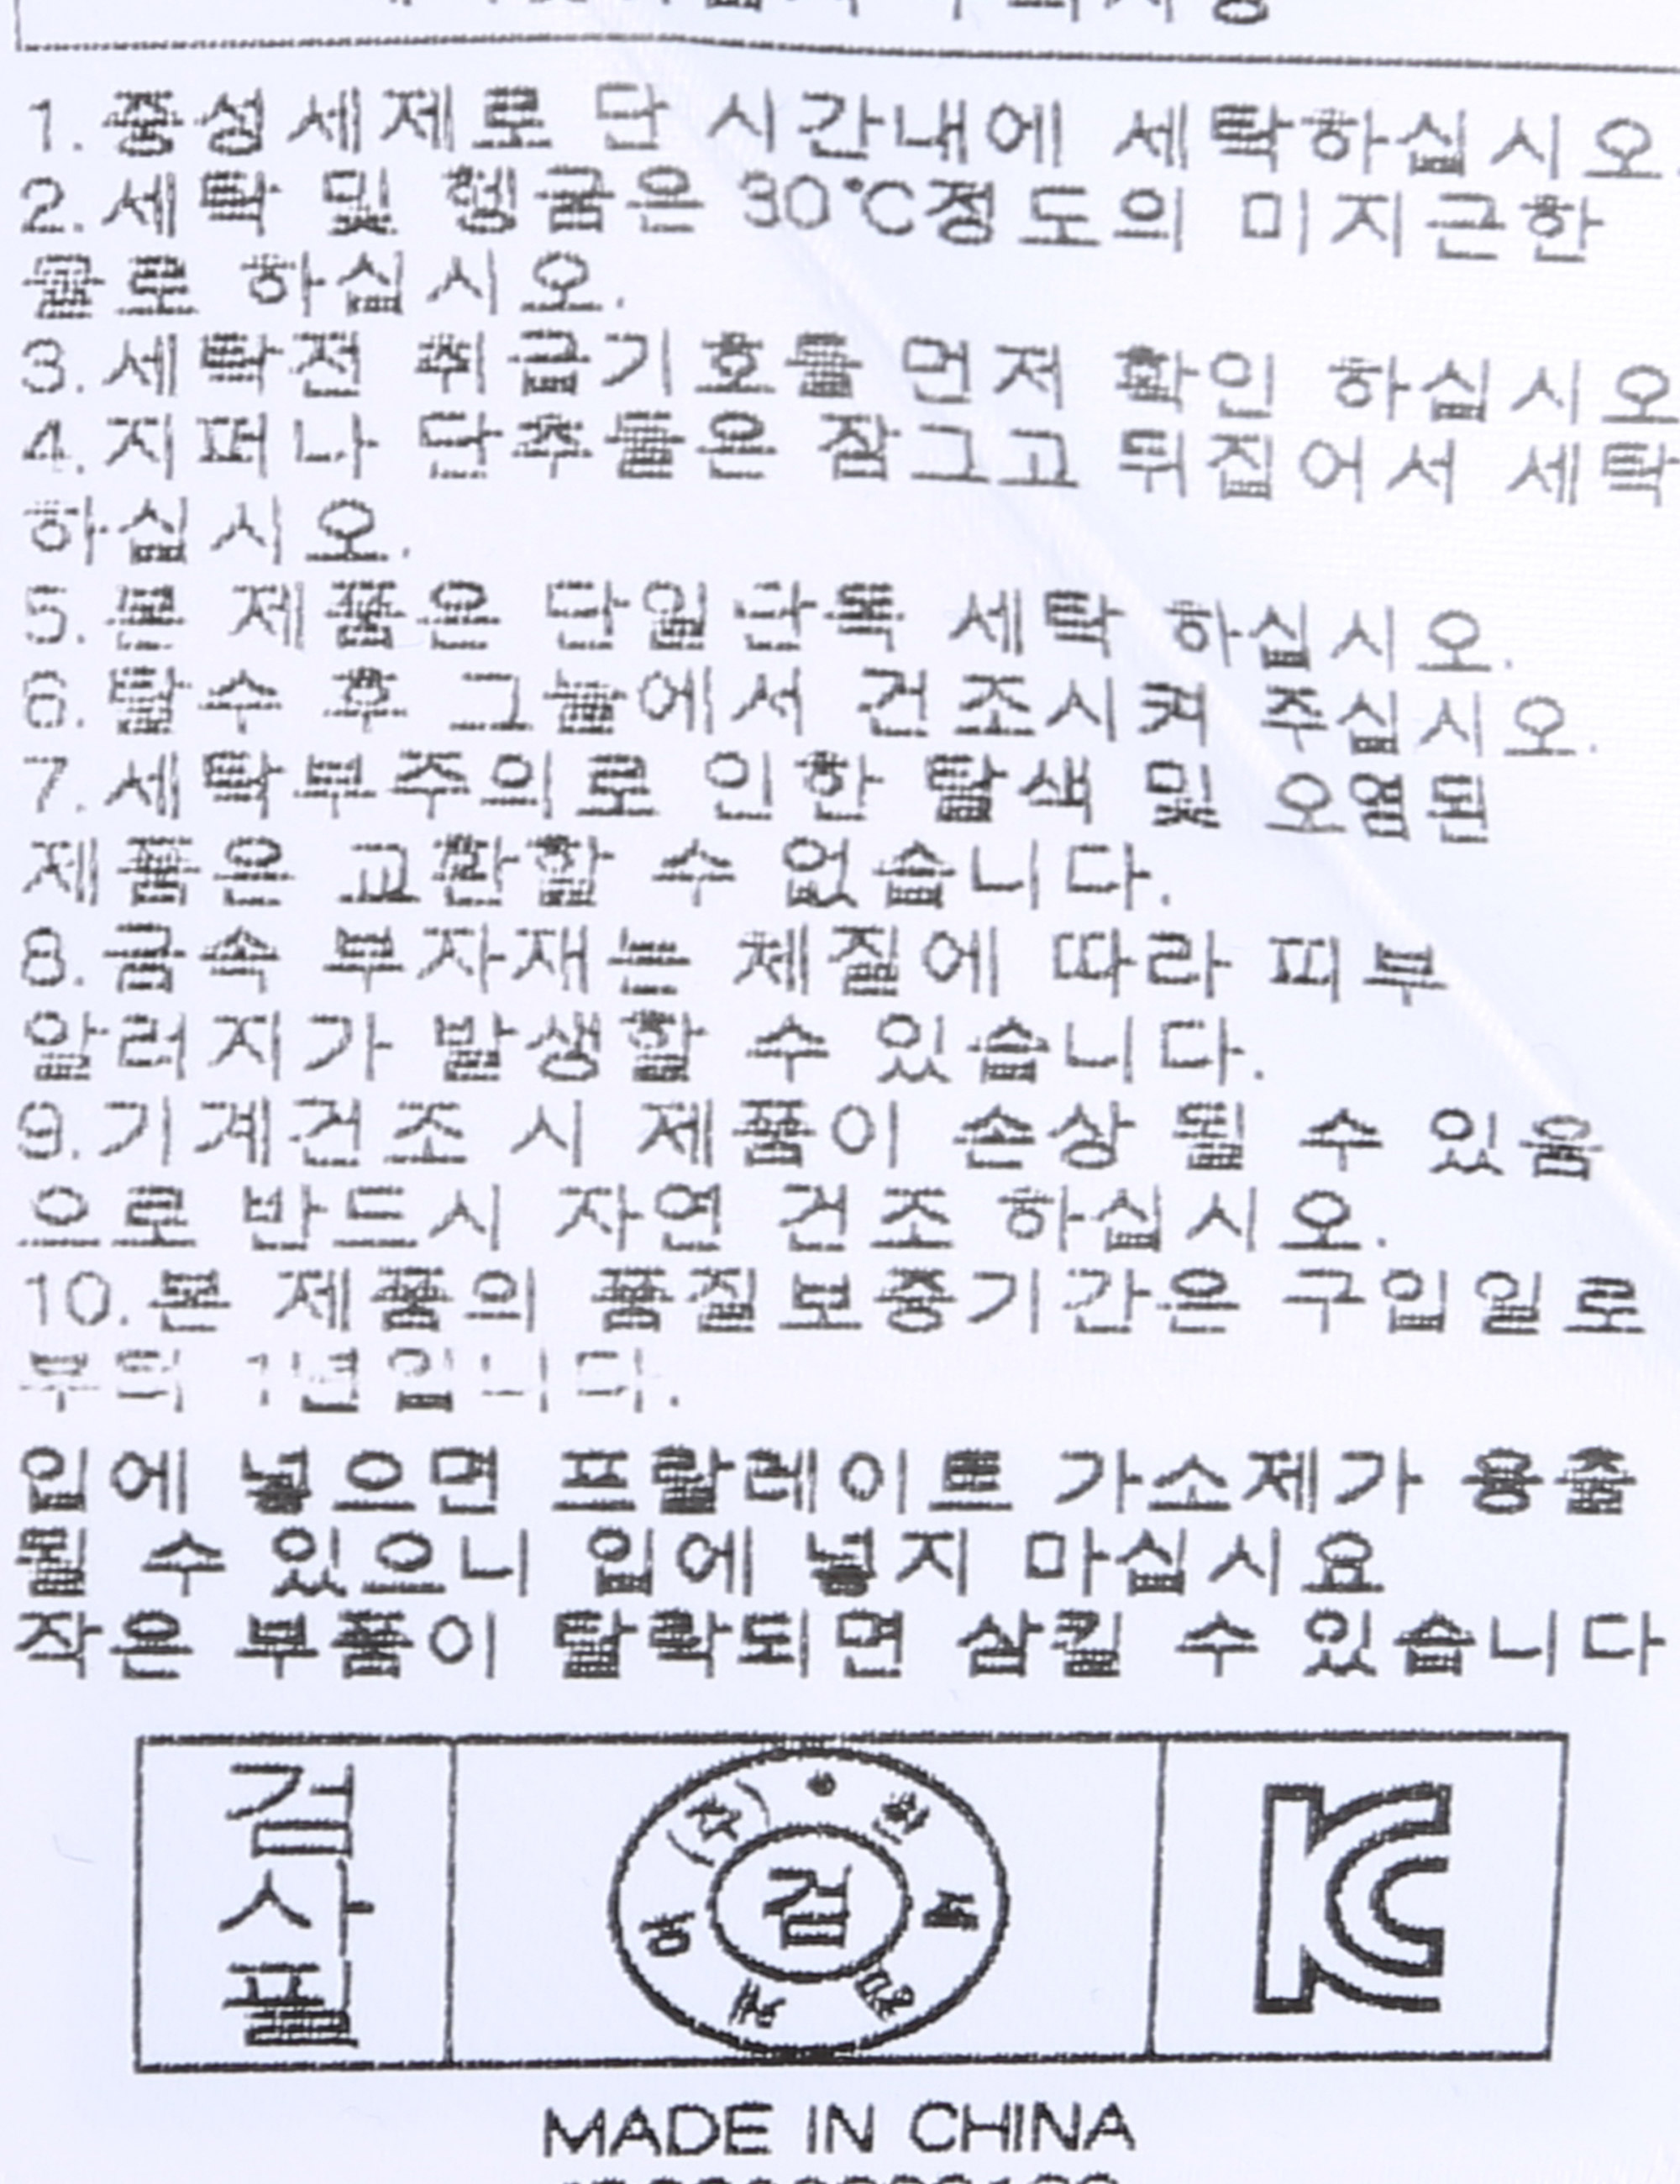 1.중성세제로 단 시간내에 세탁하십시오.
2.세탁 및 헹굼은 30℃정도의 미지근한
물로 하십시오.
3.세탁전 취급기호를 먼저 확인 하십시오
4.지퍼나 단추들은 잠그고 뒤집어서 세탁
하십시오.
5.본 제품은 단일단독 세탁 하십시오.
6.탈수 후 그늘에서 건조시켜 주십시오.
7.세탁부주의로 인한 탈색 및 오염된
제품은 교환할 수 없습니다.
8.금속 부자재는 체질에 따라 피부
알러지가 발생할 수 있습니다.
9.기계건조 시 제품이 손상 될 수 있음
으로 반드시 자연 건조 하십시오.
10.본 제품의 품질보증기간은 구입일로
부터 1년입니다.
입에 넣으면 프탈레이트 가소제가 용출
될 수 있으니 입에 넣지 마십시요
작은 부품이 탈락되면 삼킬 수 있습니다
검사필
검
KC
MADE IN CHINA